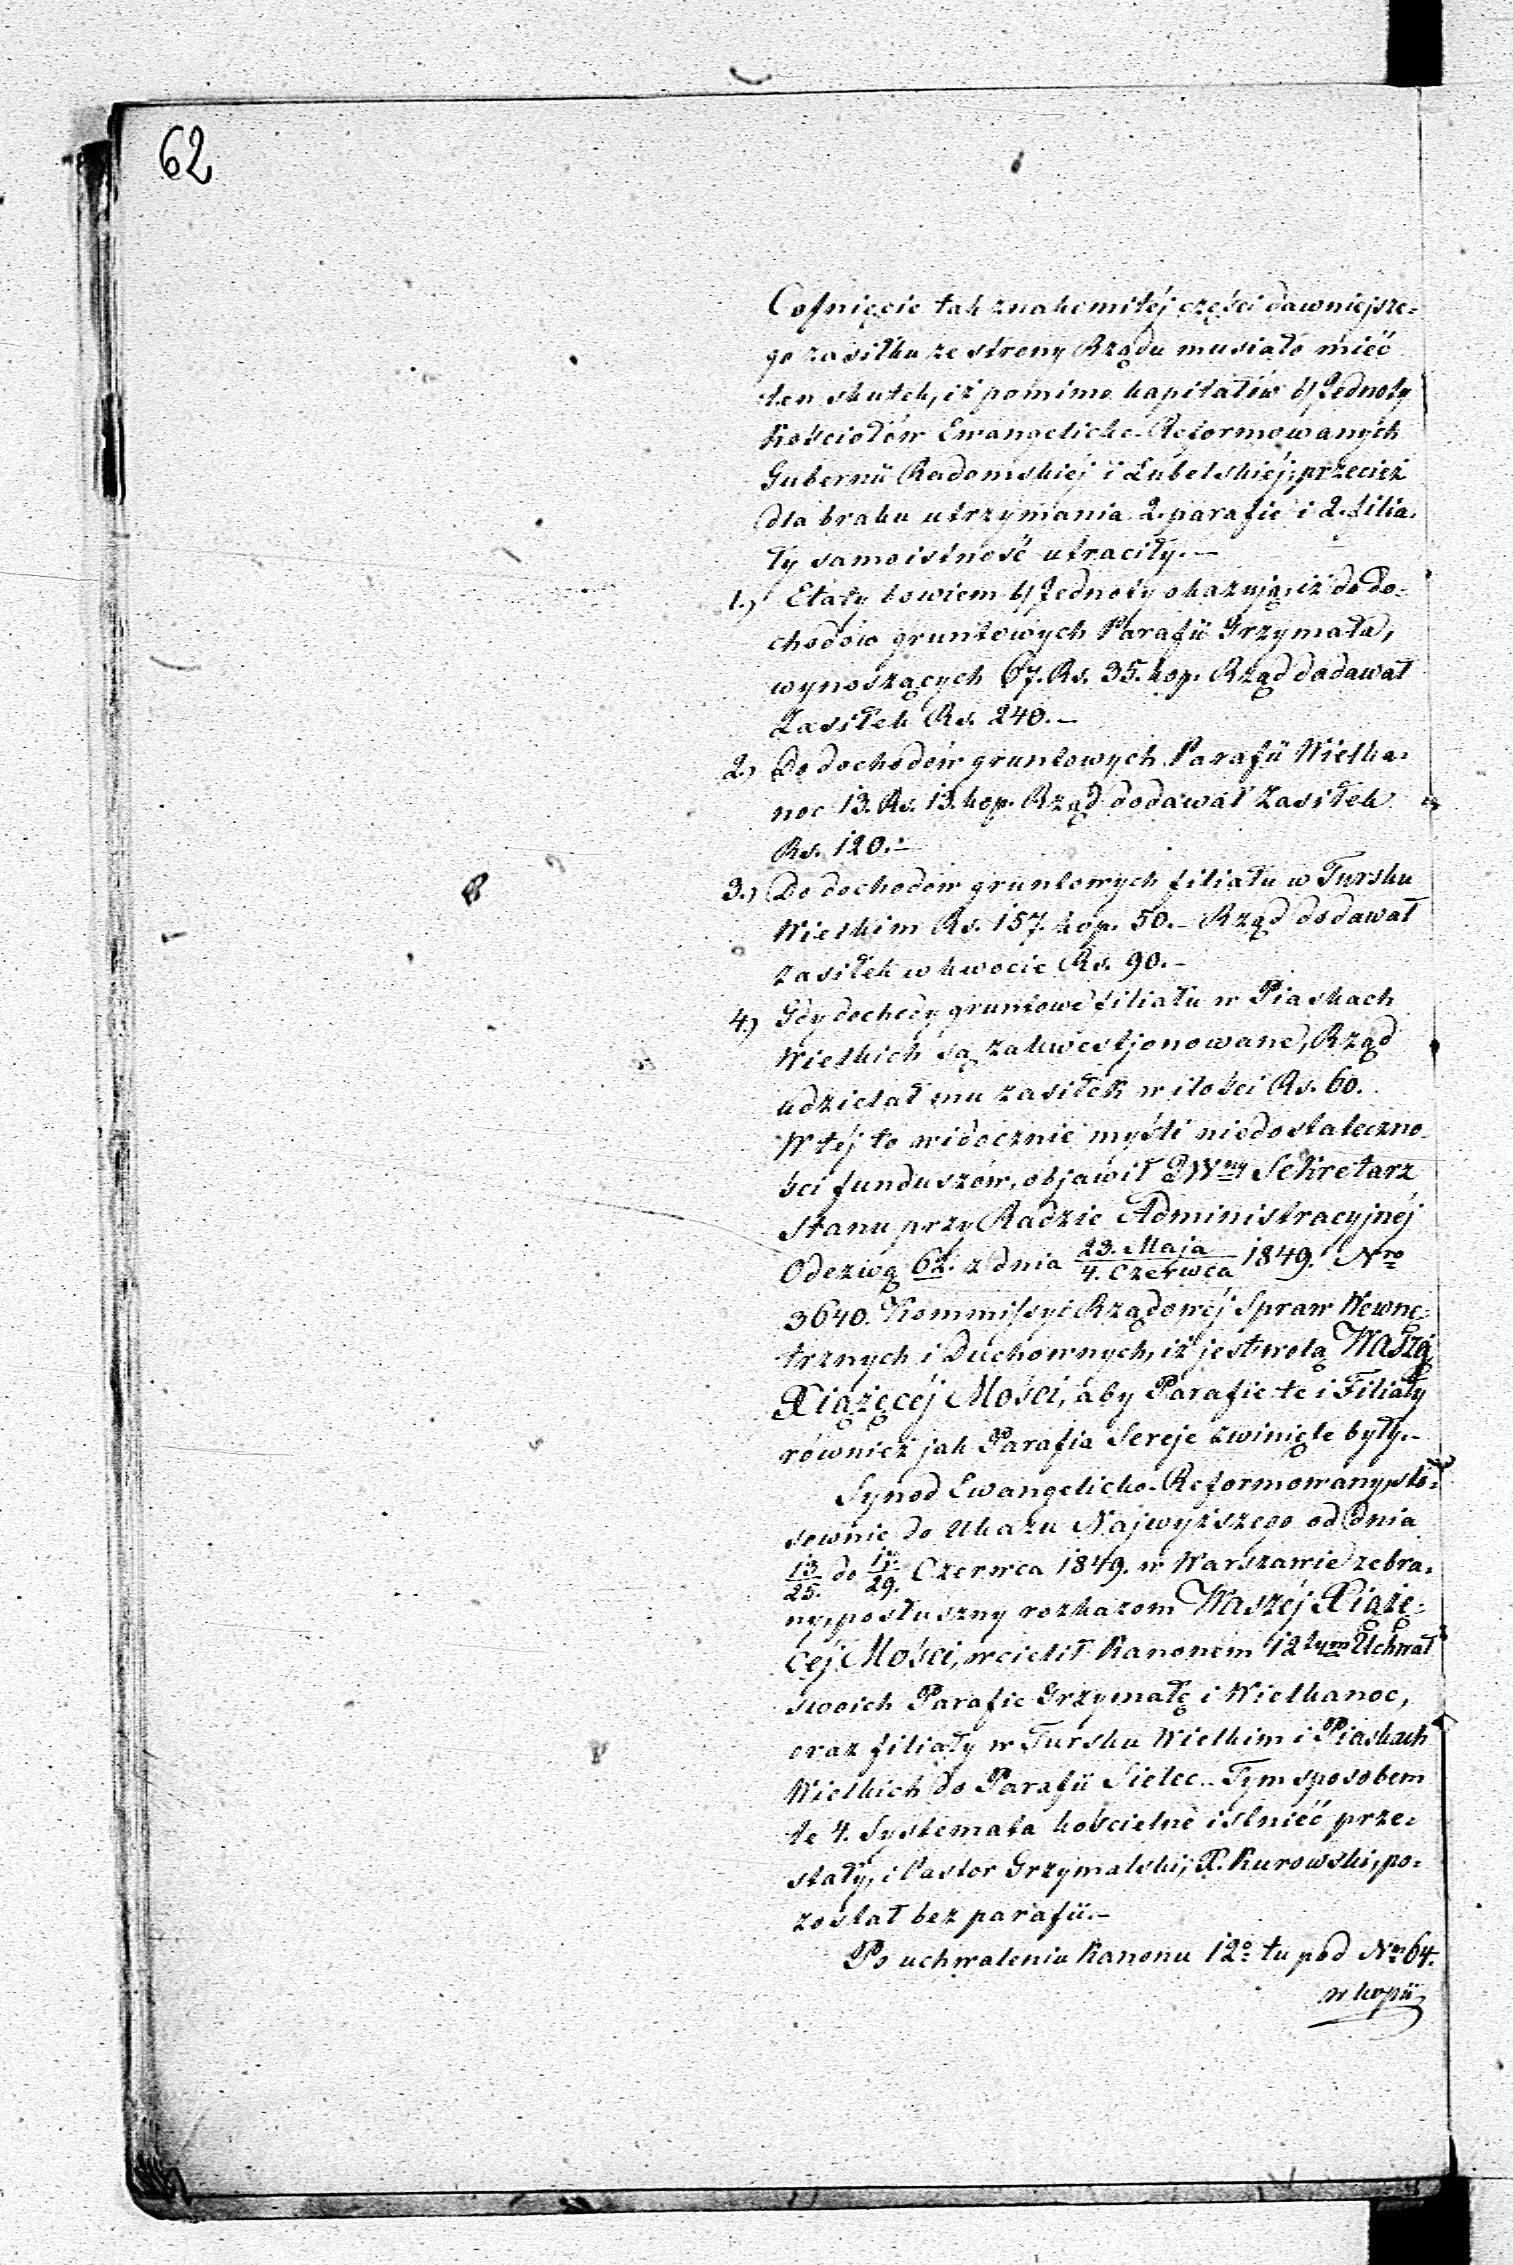 62
Cofnięcie tak znakomitéj części dawniejsze-
go zasiłku ze strony Rządu musiało mieć
ten skutek, iż pomimo kapitałów b/ Jednoty
Kościołów Ewangelicko-Reformowanych
Gubernii Radomskiéj i Lubelskiéj, przecież
dla braku utrzymania 2. parafie i 2. filia-
ły samoistność utraciły.—
1.) Etaty bowiem b/ Jednoty okazują, iż do do-
chodów gruntowych Parafii Grzymała,
wynoszących 67. Rs. 35. kop. Rząd dodawał
Zasiłek Rs. 240.—
2.) Do dochodów gruntowych Parafii Wielka-
noc 13. Rs. 13. kop. Rząd dodawał Zasiłek
Rs. 120.—
3.) Do dochodów gruntowych filiału w Tursku
Wielkim Rs. 157. kop. 50.— Rząd dodawał
zasiłek w kwocie Rs. 90.—
4.) Gdy dochody gruntowe filiału w Piaskach
Wielkich są zakwestjonowane, Rząd
udzielał mu zasiłek w ilości Rs. 60.
W téj to widocznie myśli niedostateczno-
ści funduszów, objawił JWny Sekretarz
Stanu przy Radzie Administracyjnéj
Odezwą 62. z dnia 23. Maja/4. Czerwca 1849. Nro
3640. Kommissyi Rządowéj Spraw Wewnę-
trznych i Duchownych, iż jest wolą Waszą
Xiążęcéj Mości, aby Parafie te i Filiały
również jak Parafia Sereje zwinięte były.—
Synod Ewangelicko-Reformowany, sto-
sownie do Ukazu Najwyższego od dnia
13/25. do 17/29. Czerwca 1849. w Warszawie zebra-
ny, posłuszny rozkazom Waszéj Xiążę-
céj Mości, wcielił Kanonem 12tym Uchwał
swoich Parafie Grzymałę i Wielkanoc,
oraz filiały w Tursku Wielkim i Piaskach
Wielkich do Parafii Sielec.— Tym sposobem
te 4. Systemata kościelne istnieć prze-
stały, i Pastor Grzymalski, X. Kurowski, po-
został bez parafii.—
Po uchwaleniu Kanonu 12o tu pod Nr 64.
w kopii